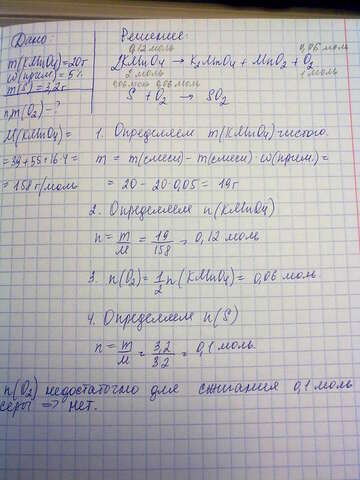 Дано:
m(KMnO4)=20г
ω(прим.)=5%
m(S)=3,2г
n,m(O2)-?
M(KMnO4)=
=39+55+16·4=
=158г/моль
Решение:
0,12 моль 0,06 моль
2KMnO4 → K2MnO4 + MnO2 + O2
2 моль 1 моль
0,06 моль 0,06 моль
S + O2 → SO2
1. Определяем m(KMnO4) чистого.
m = m(смеси) - m(смеси)·ω(прим.)=
= 20 - 20·0,05 = 19г
2. Определяем n(KMnO4)
n = m/M = 19/158 = 0,12 моль
3. n(O2)=1/2 n(KMnO4)= 0,06 моль.
4. Определяем n(S)
n = m/M = 3,2/32 = 0,1 моль.
n(O2) недостаточно для сжигания 0,1 моль
серы => нет.